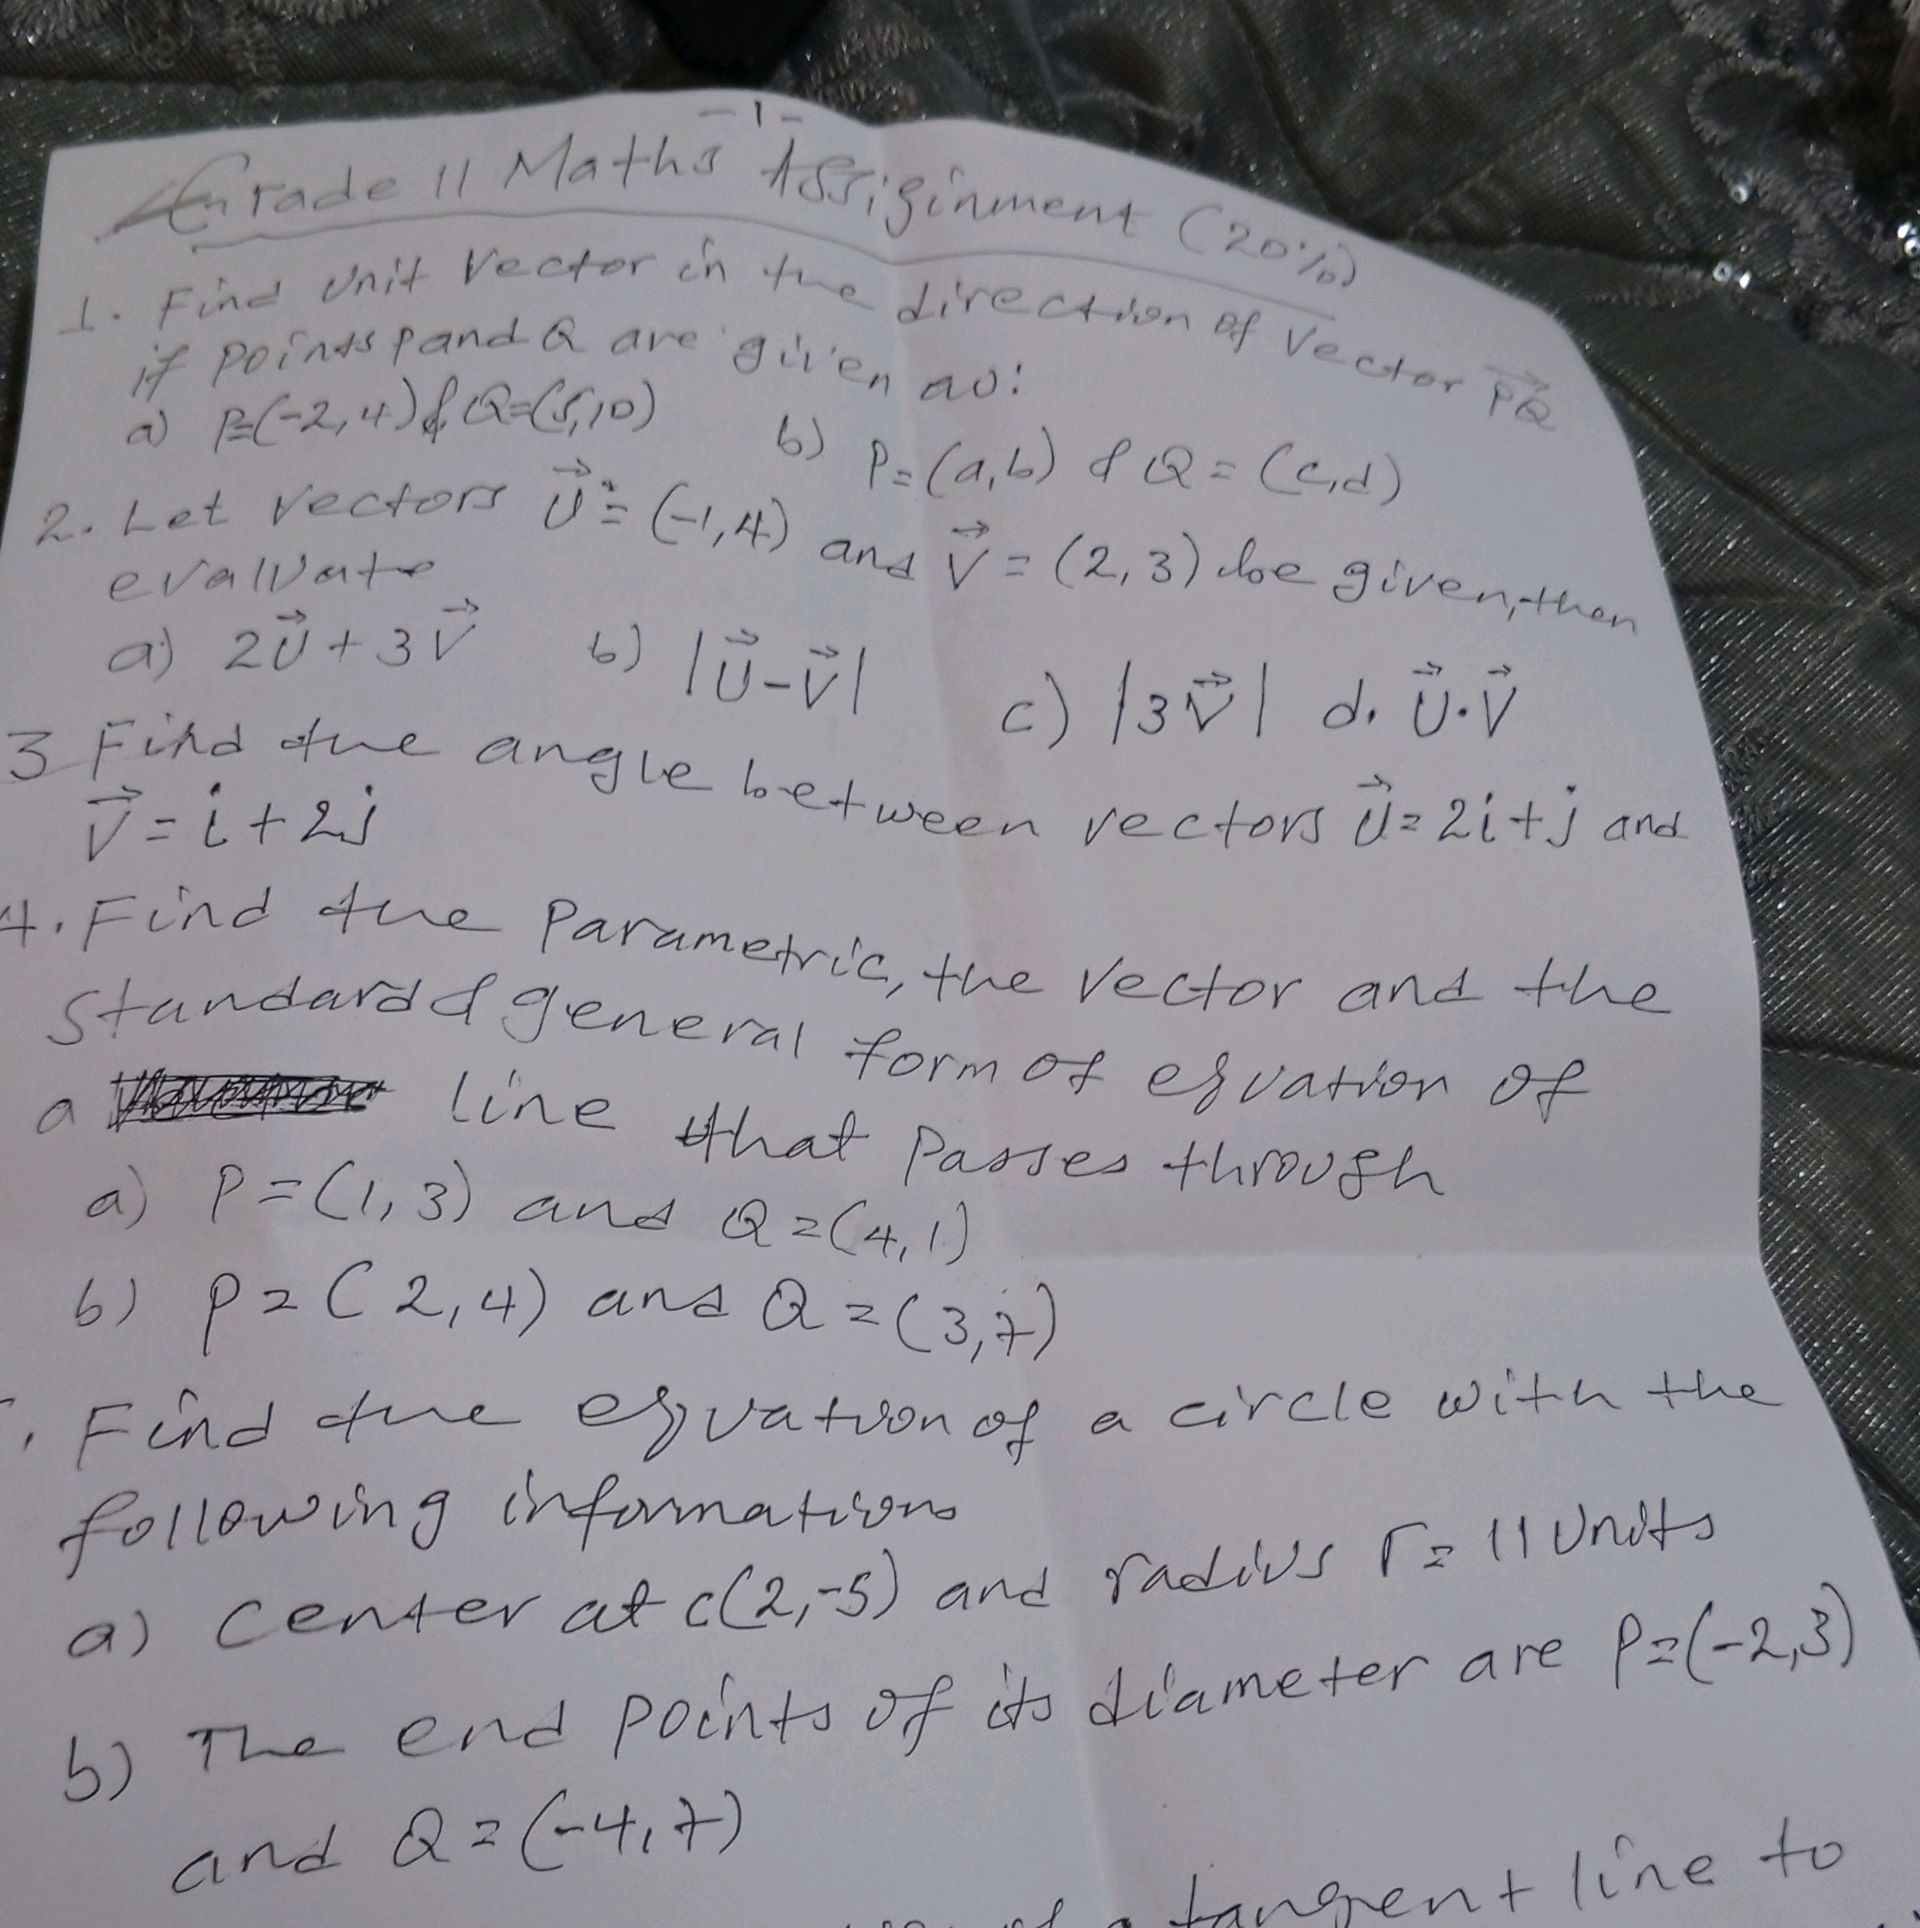 -1-
Grade 11 Maths Assiginment (20%)
1. Find Unit Vector in the direction of Vector PQ
if points p and Q are given as:
a) P=(-2,4) & Q=(5,10) b) P=(a,b) & Q=(c,d)
2. Let Vectors U⃗=(-1,4) and V⃗=(2,3) be given, then
evaluate
a) 2U⃗+3V⃗ b) |U⃗-V⃗| c) |3V⃗| d. U⃗.V⃗
3 Find the angle between vectors U⃗=2i+j and
V⃗=i+2j
4. Find the parametric, the vector and the
standard & general form of equation of
a line that passes through
a) P=(1,3) and Q=(4,1)
b) P=(2,4) and Q=(3,7)
. Find the equation of a circle with the
following informations
a) Center at c(2,-5) and radius r=11 Units
b) The end points of its diameter are P=(-2,3)
and Q=(-4,7)
of a tangent line to